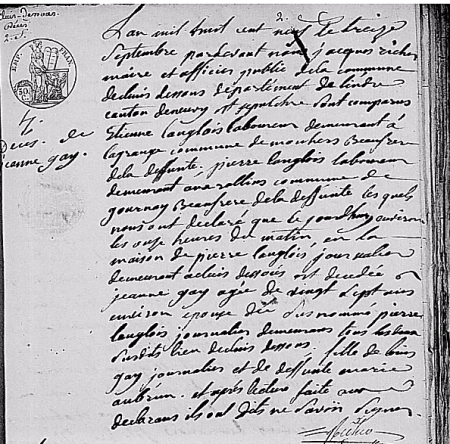 cluis-dessous
EMP. FRAN.
50
4.
Deces. de
jeanne gay.
L'an mil huit cent neuf le treize
Septembre pardevant nous jacques
maire et officier public de la commune
de cluis dessous département de lindre
canton de neuvy St sepulchre sont comparus
Etienne langlois laboureur demeurant à
lagrange commune de mouhers Beaufrere
dela deffunte, pierre langlois laboureur
demeurant aux commune de
gournay Beaufrere dela deffunte les quels
nous ont déclaré que le jourdhuy environ
les onze heures du matin, en la
maison de pierre langlois journalier
demeurant a cluis dessous est decedée
jeanne gay agée de vingt sept ans
environ epouse du Susnommé pierre
langlois journalier demeurans tous les deux
Susdits lieu de cluis dessous. fille de
gay journalier et de deffunte marie
aubrun. et après lecture faite aux
declarans ils ont dits ne Savoir Signer